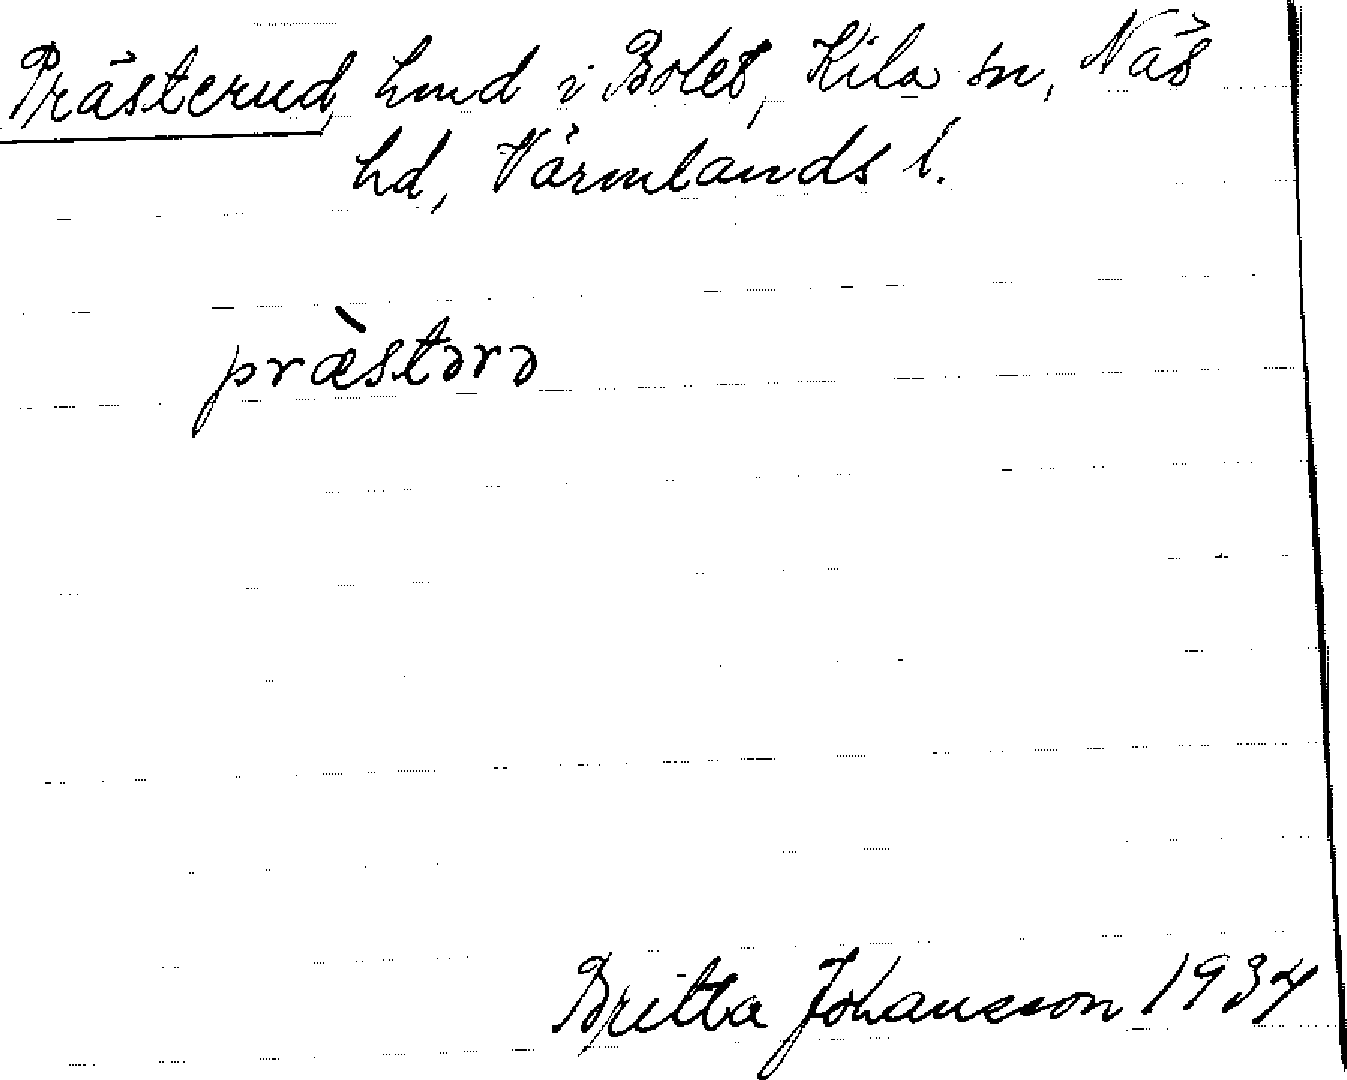 Prästerud, hmd i Bolet, Kila sn, Näs
hd, Värmlands l.
præ̀stərə
Britta Johansson 1934